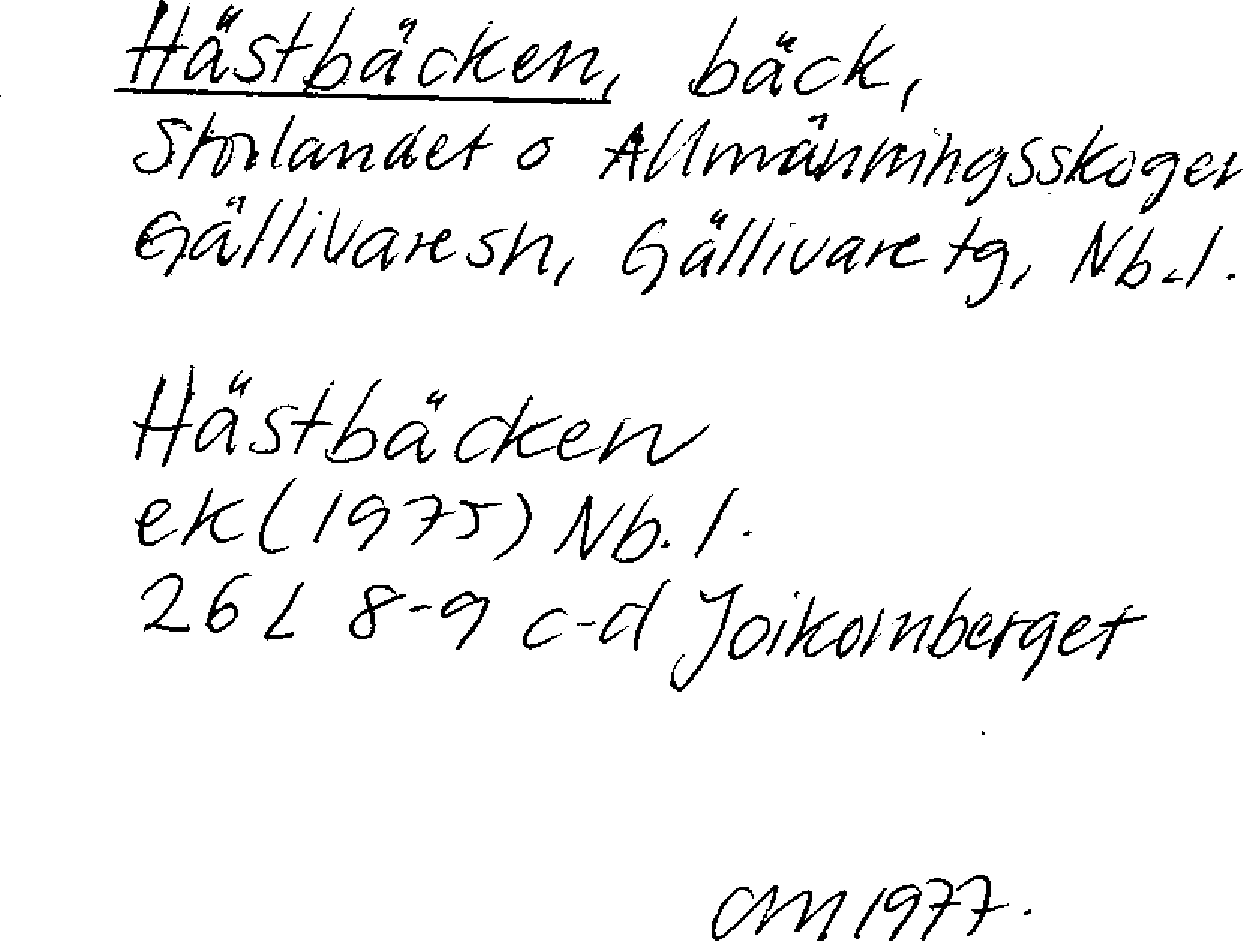 Hästbäcken, bäck,
Storlandet o Allmänningsskogen
Gällivare sn, Gällivare tg, Nb. l.
Hästbäcken
ek (1975) Nb. l.
26 L 8-9 c-d Joikomberget
CM 1977.